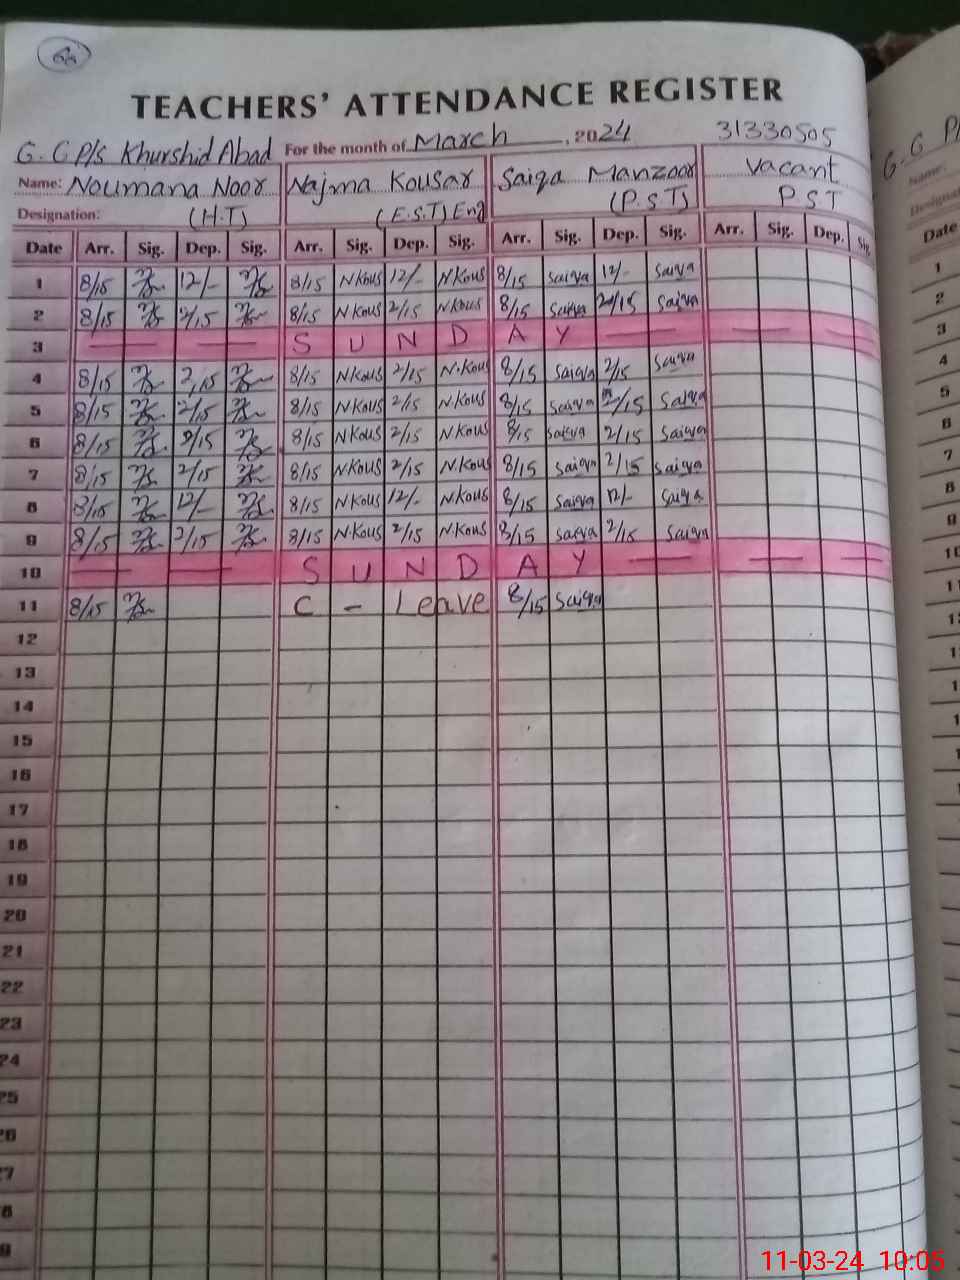 TEACHERS' ATTENDANCE REGISTER
G.G P/S Khurshid Abad For the month of March, 2024 31330505
Name: Noumana Noor Najma Kousar Saiqa Manzoor Vacant
Designation: (H.T) (E.S.T) Eng (P.S.T) P S T
Date Arr. Sig. Dep. Sig. Arr. Sig. Dep. Sig. Arr. Sig. Dep. Sig. Arr. Sig. Dep. Sig.
1 8/15 12/- 8/15 N Kous 12/- N Kous 8/15 Saiqa 12/- Saiqa
2 8/15 2/15 8/15 N Kous 2/15 N Kous 8/15 Saiqa 2/15 Saiqa
3 S U N D A Y
4 8/15 2/15 8/15 N Kous 2/15 N.Kous 8/15 Saiqa 2/15 Saiqa
5 8/15 2/15 8/15 N Kous 2/15 N Kous 8/15 Saiqa 2/15 Saiqa
6 8/15 2/15 8/15 N Kous 2/15 N Kous 8/15 Saiqa 2/15 Saiqa
7 8/15 2/15 8/15 N Kous 2/15 N Kous 8/15 Saiqa 2/15 Saiqa
8 8/15 12/- 8/15 N Kous 12/- N Kous 8/15 Saiqa 12/- Saiqa
9 8/15 2/15 8/15 N.Kous 2/15 N.Kous 8/15 Saiqa 2/15 Saiqa
10 S U N D A Y
11 8/15 C - Leave 8/15 Saiqa
12
13
14
15
16
17
18
19
20
21
22
23
24
25
26
27
8
9
G.G P/
Name:
Date
1
2
3
4
5
6
7
8
9
10
11
11-03-24 10:05